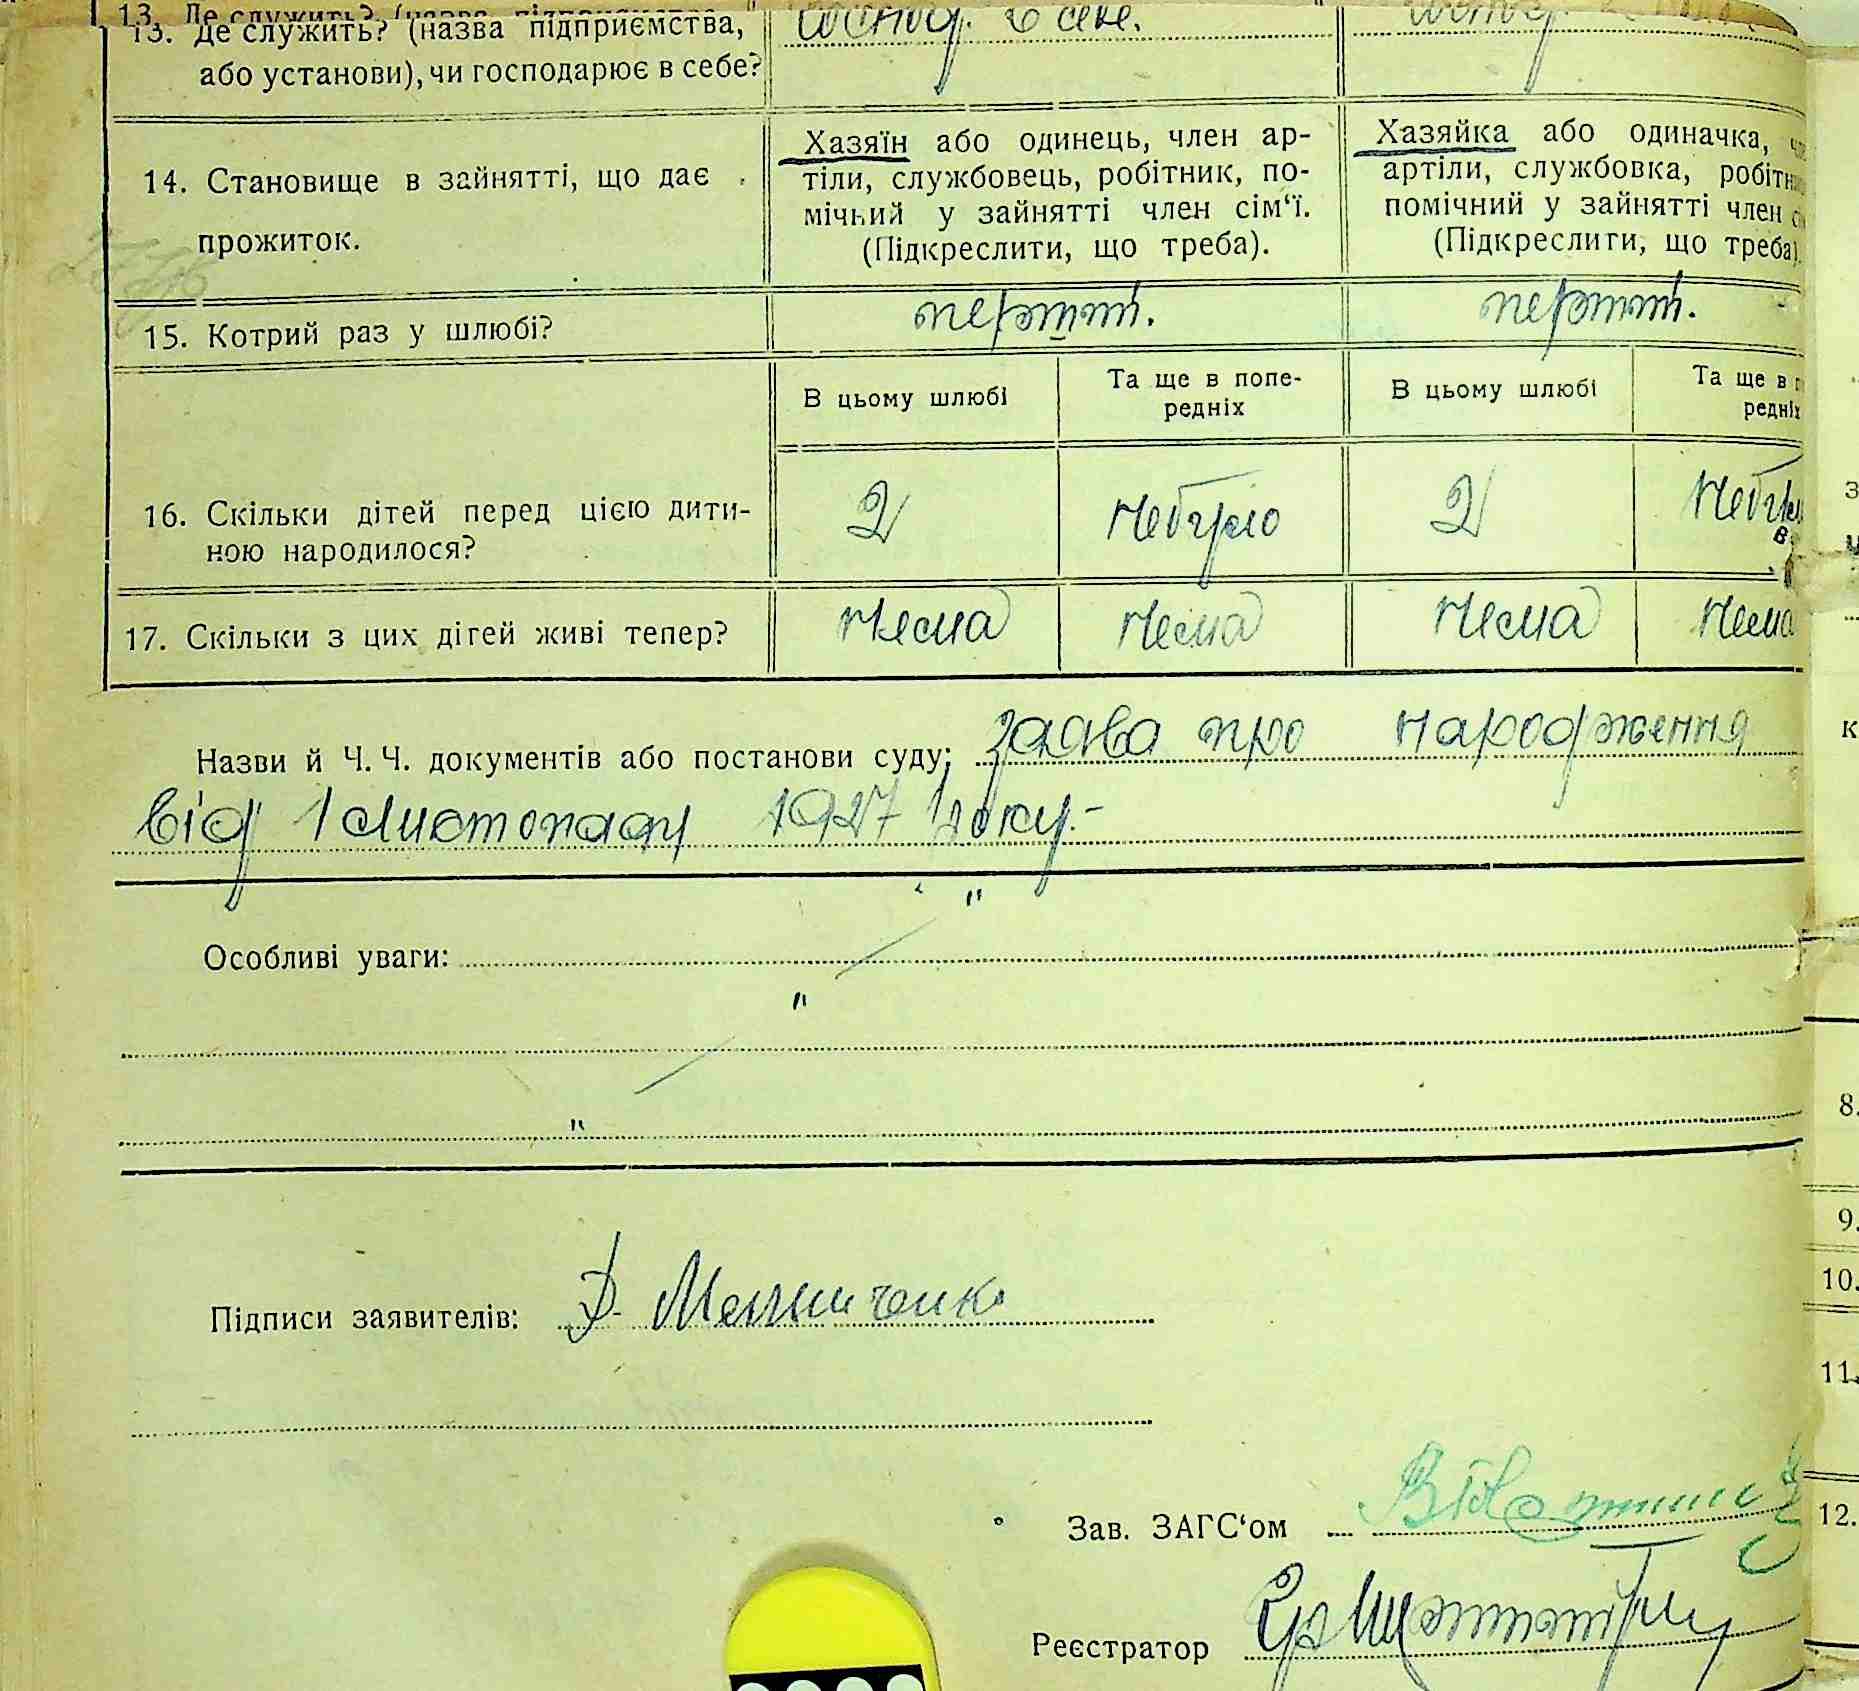 13. Де служить? (назва підприємства, господ. в себе.
або установи), чи господарює в себе?
14. Становище в зайнятті, що дає прожиток.
Хазяїн або одинець, член ар-
тіли, службовець, робітник, по-
мічний у зайнятті член сім'ї.
(Підкреслити, що треба).
Хазяйка або одиначка,
артіли, службовка,
помічний у зайнятті член
(Підкреслити, що треба).
15. Котрий раз у шлюбі? перший. перший.
В цьому шлюбі
Та ще в попе-
редніх
В цьому шлюбі
Та ще в
редніх
16. Скільки дітей перед цією дити-
ною народилося?
2 небуло 2
17. Скільки з цих дітей живі тепер? нема нема нема нема
Назви й Ч. Ч. документів або постанови суду: заява про народження
від 1 листопаду 1927 року.-
"
Особливі уваги:
"
"
Підписи заявителів:
Зав. ЗАГС'ом
Реєстратор
8.
9.
10.
11.
12.